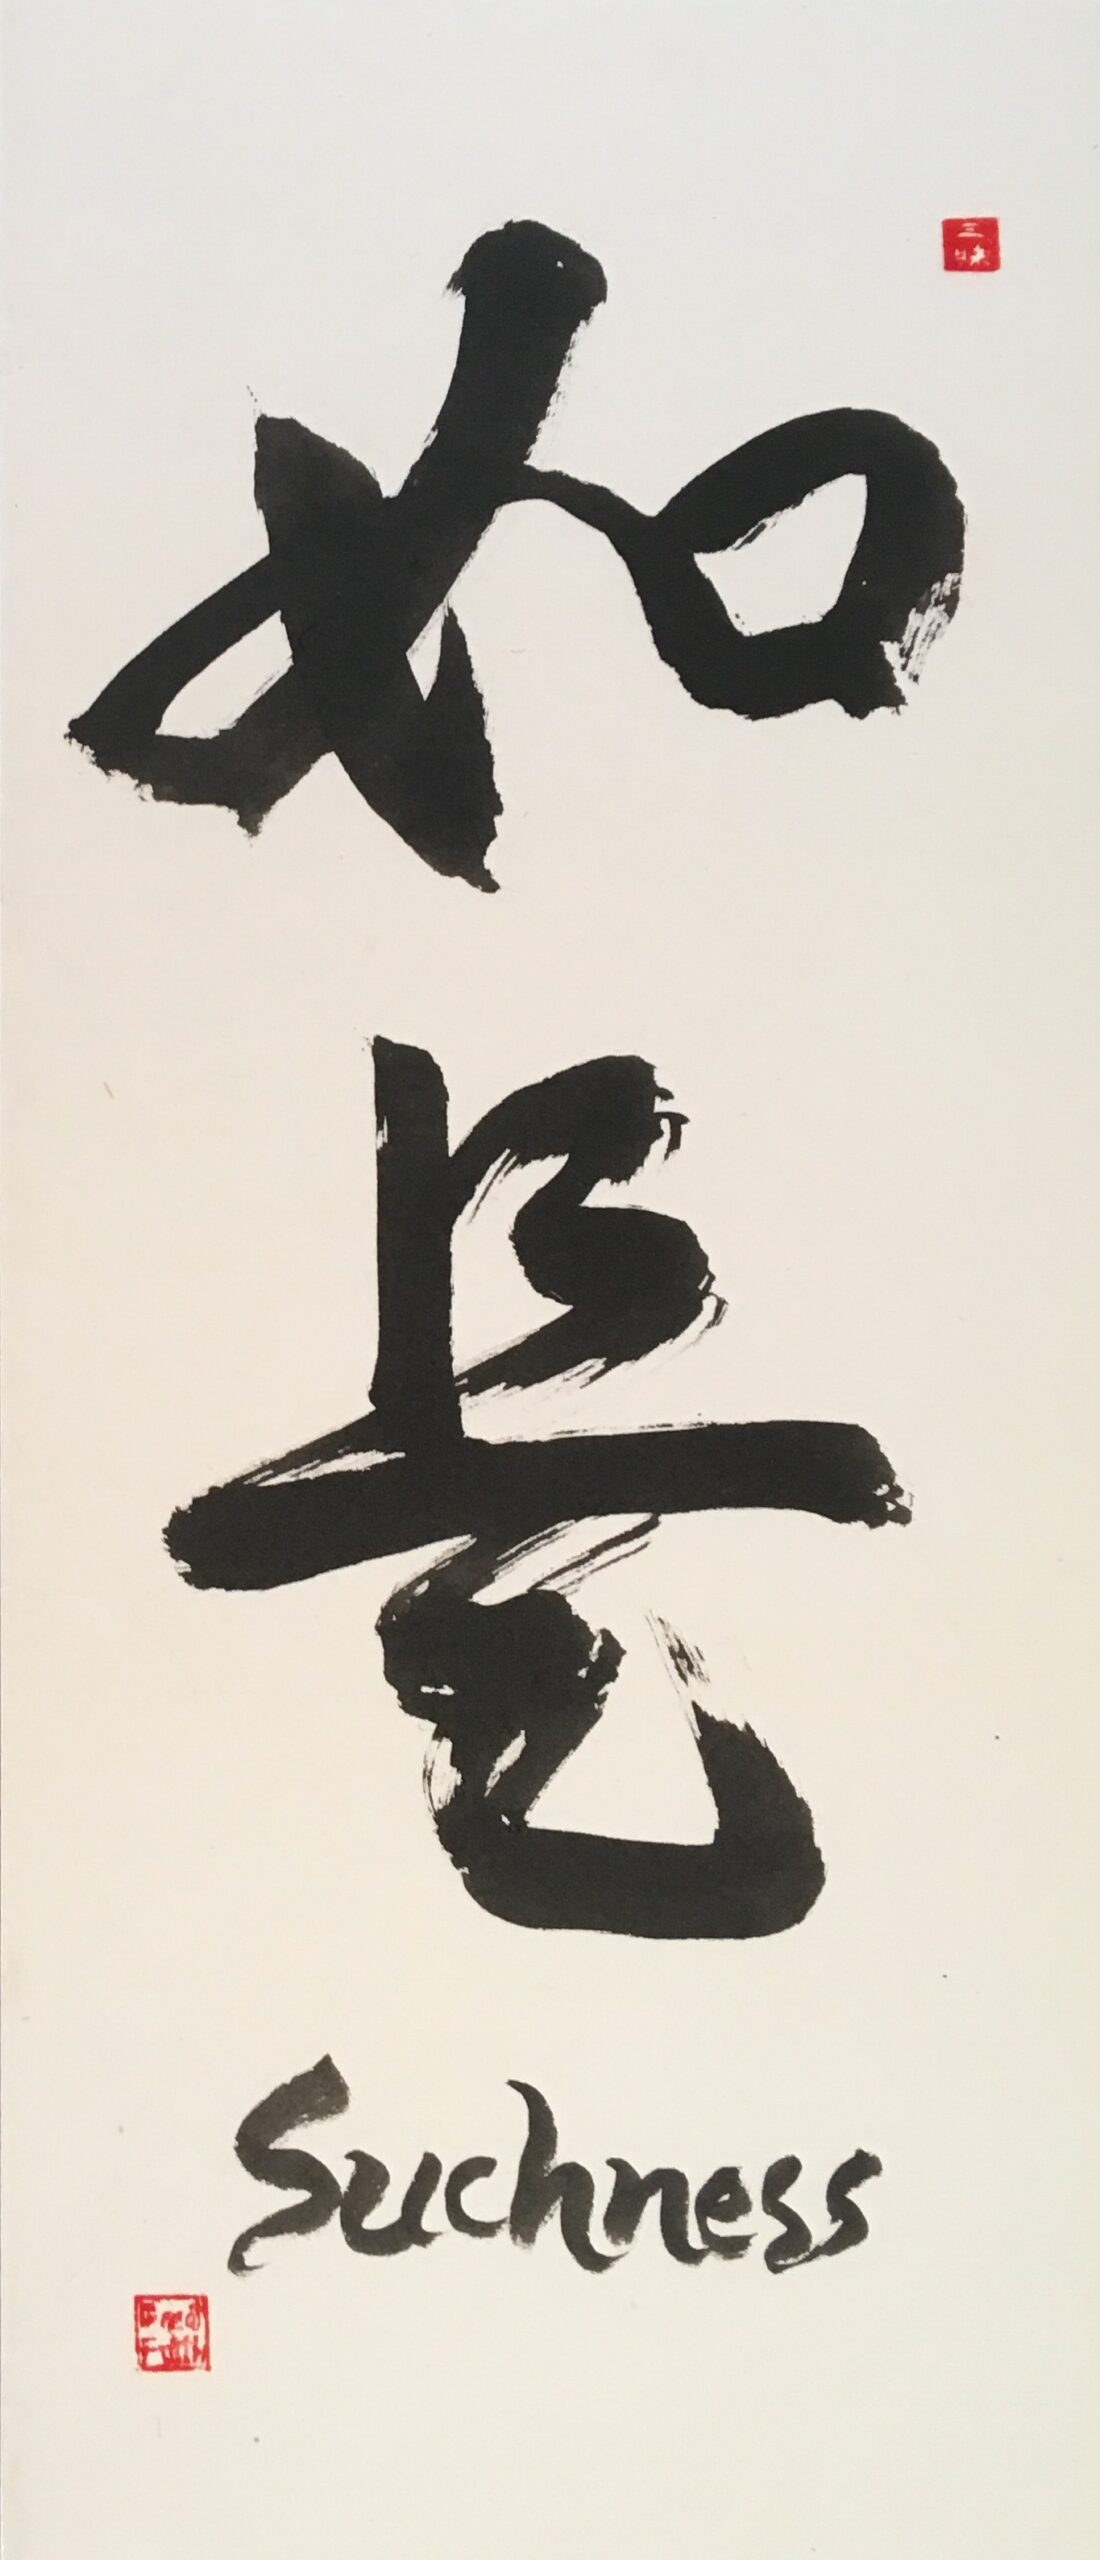 三昧
如
是
Suchness